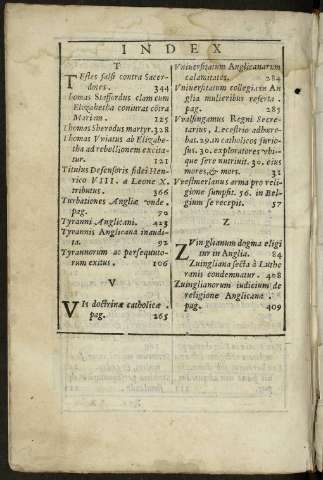 INDEX
T
TEstes falsi contra Sacerdotes. 344
Thomas Staffordus clam cum
Elizabetha coniurat cōtra
Mariam. 125
Thomas Sherodus martyr. 328
Thomas Vviatus ab Elizabetha
ad rebellionem excitatur. 121
Titulus Defensoris fidei Henrico
VIII. a Leone X.
tributus. 366
Turbationes Angliæ vnde.
pag. 70
Tyranni Anglicani. 423
Tyrannis Anglicana inaudita. 92
Tyrannorum ac persequutorum
exitus. 106
V
VIs doctrinæ catholicæ.
pag. 265
Vniuersitatum Anglicanarum
calamitates. 284
Vniuersitatum collegia in Anglia
mulieribus referta.
pag. 285
Vvalsingamus Regni Secretarius,
Lecestrio adhærebat.
29. in catholicos furiosus.
30. exploratores vbique
fere nutriuit. 30. eius
mores, & mors. 31
Vvestmerlanus arma pro religione
sumpsit. 56. in Belgium
se recepit. 57
Z
ZVinglianum dogma eligitur
in Anglia. 84
Zuingliana secta à Lutheranis
condemnatur. 408
Zuinglianorum iudicium de
religione Anglicana.
pag. 409